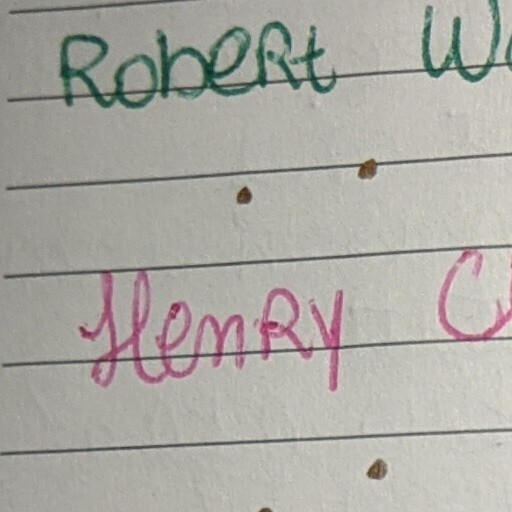 Robert
Henry